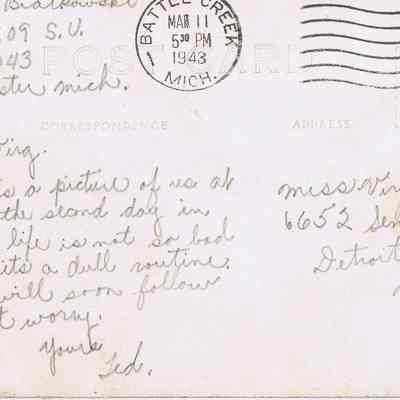 Bialkowski
09 S.U.
943
ster mich.
BATTLE CREEK
MAR 11
5 30 PM
1943
MICH.
1
POST CARD
CORRESPONDENCE
ADDRESS
Virg.
is a picture of us at
the second day in
life is not so bad
its a dull routine.
will soon follow
t worry.
Yours
Ted.
miss Vir
6652 Sen
Detroit